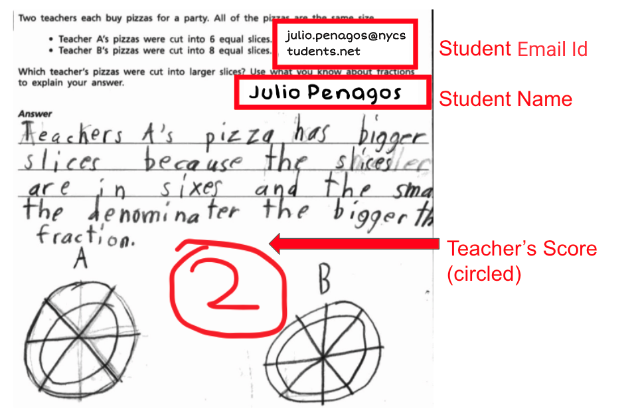 Two teachers each buy pizzas for a party. All of the pizzas are the same size.
• Teacher A's pizzas were cut into 6 equal slices.
• Teacher B's pizzas were cut into 8 equal slices.
julio.penagos@nycs
tudents.net
Student Email Id
Which teacher's pizzas were cut into larger slices? Use what you know about fractions
to explain your answer.
Julio Penagos
Student Name
Answer
Teachers A's pizza has bigger
slices because the slices
are in sixes and the sma
the denominater the bigger th
fraction.
Teacher's Score
(circled)
2
A
B